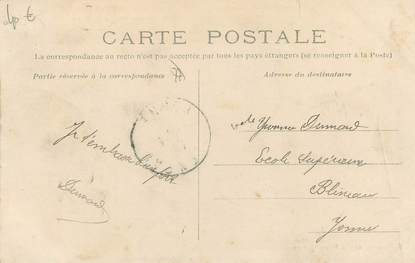 CARTE POSTALE
La correspondance au recto n'est pas acceptée par tous les pays étrangers (se renseigner à la Poste)
Partie réservée à la correspondance
Adresse du destinataire
Je t'embrasse
Durand
Yvonne Durand
Ecole Supérieure
Bléneau
Yonne